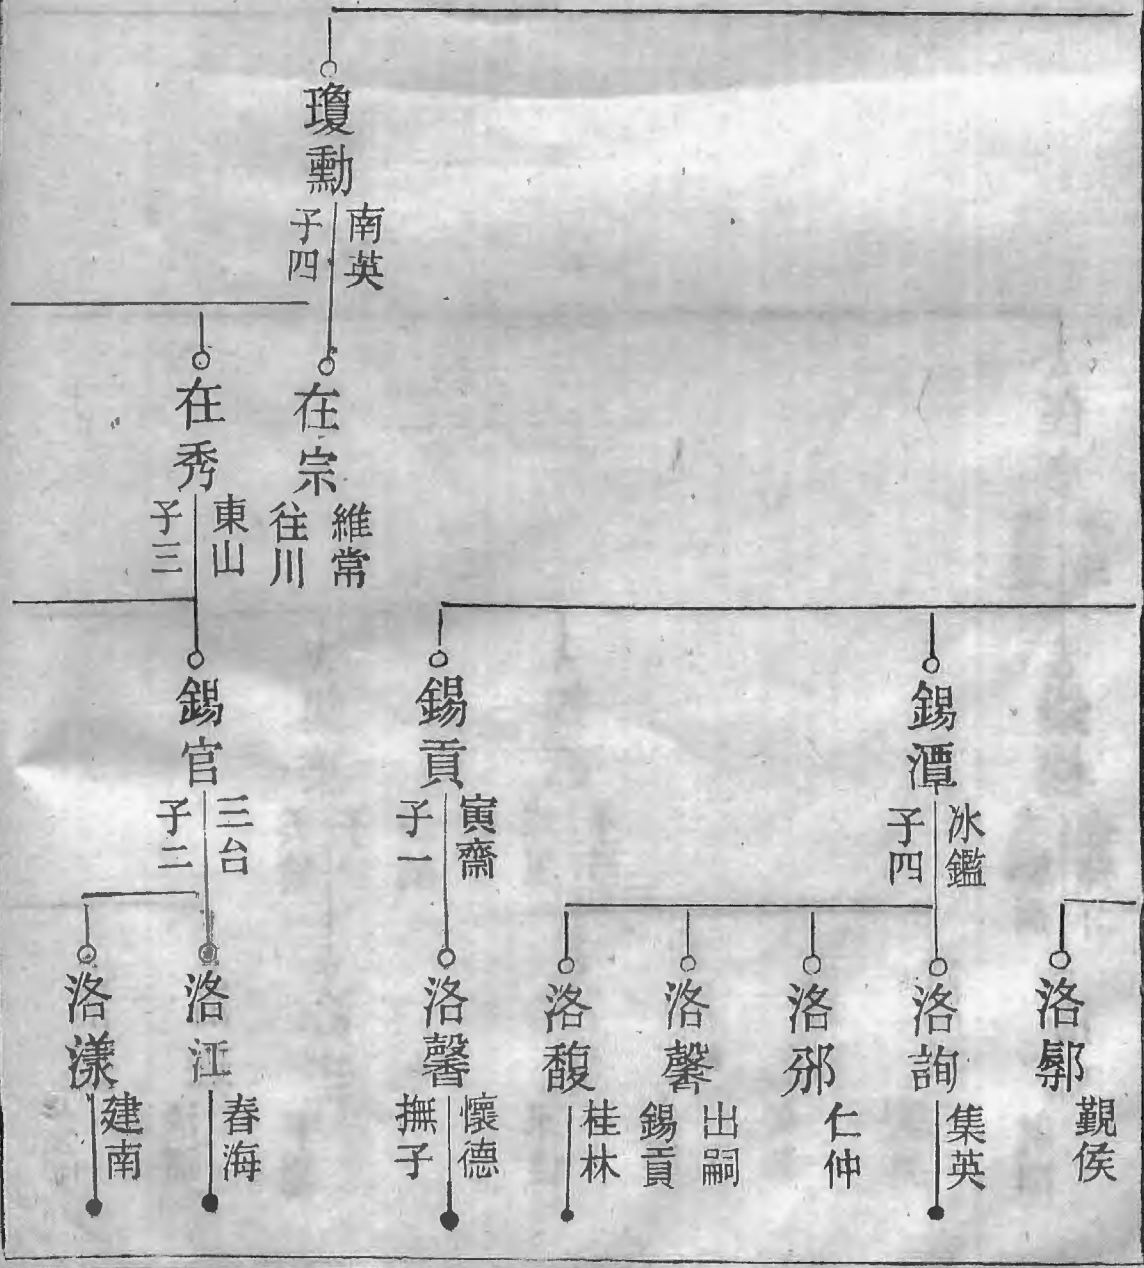 瓊勳
南英
子四
在宗
維常
往川
在秀
東山
子三
錫潭
冰鑑
子四
錫貢
寅齋
子一
錫官
三台
子二
洛鄩
觀侯
洛詢
集英
洛邠
仁仲
洛馨
出嗣
錫貢
洛馥
桂林
洛馨
懷德
撫子
洛江
春海
洛漾
建南